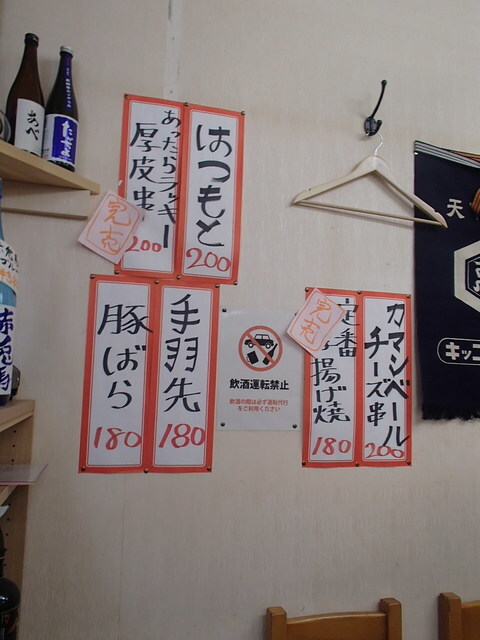 はつもと
200
あったらラッキー
厚皮串
200
完売
手羽先
180
豚ばら
180
飲酒運転禁止
飲酒の際は必ず運転代行
をご利用ください
カマンベール
チーズ串
200
定番
揚げ焼
180
完売
あべ
天
キッコ